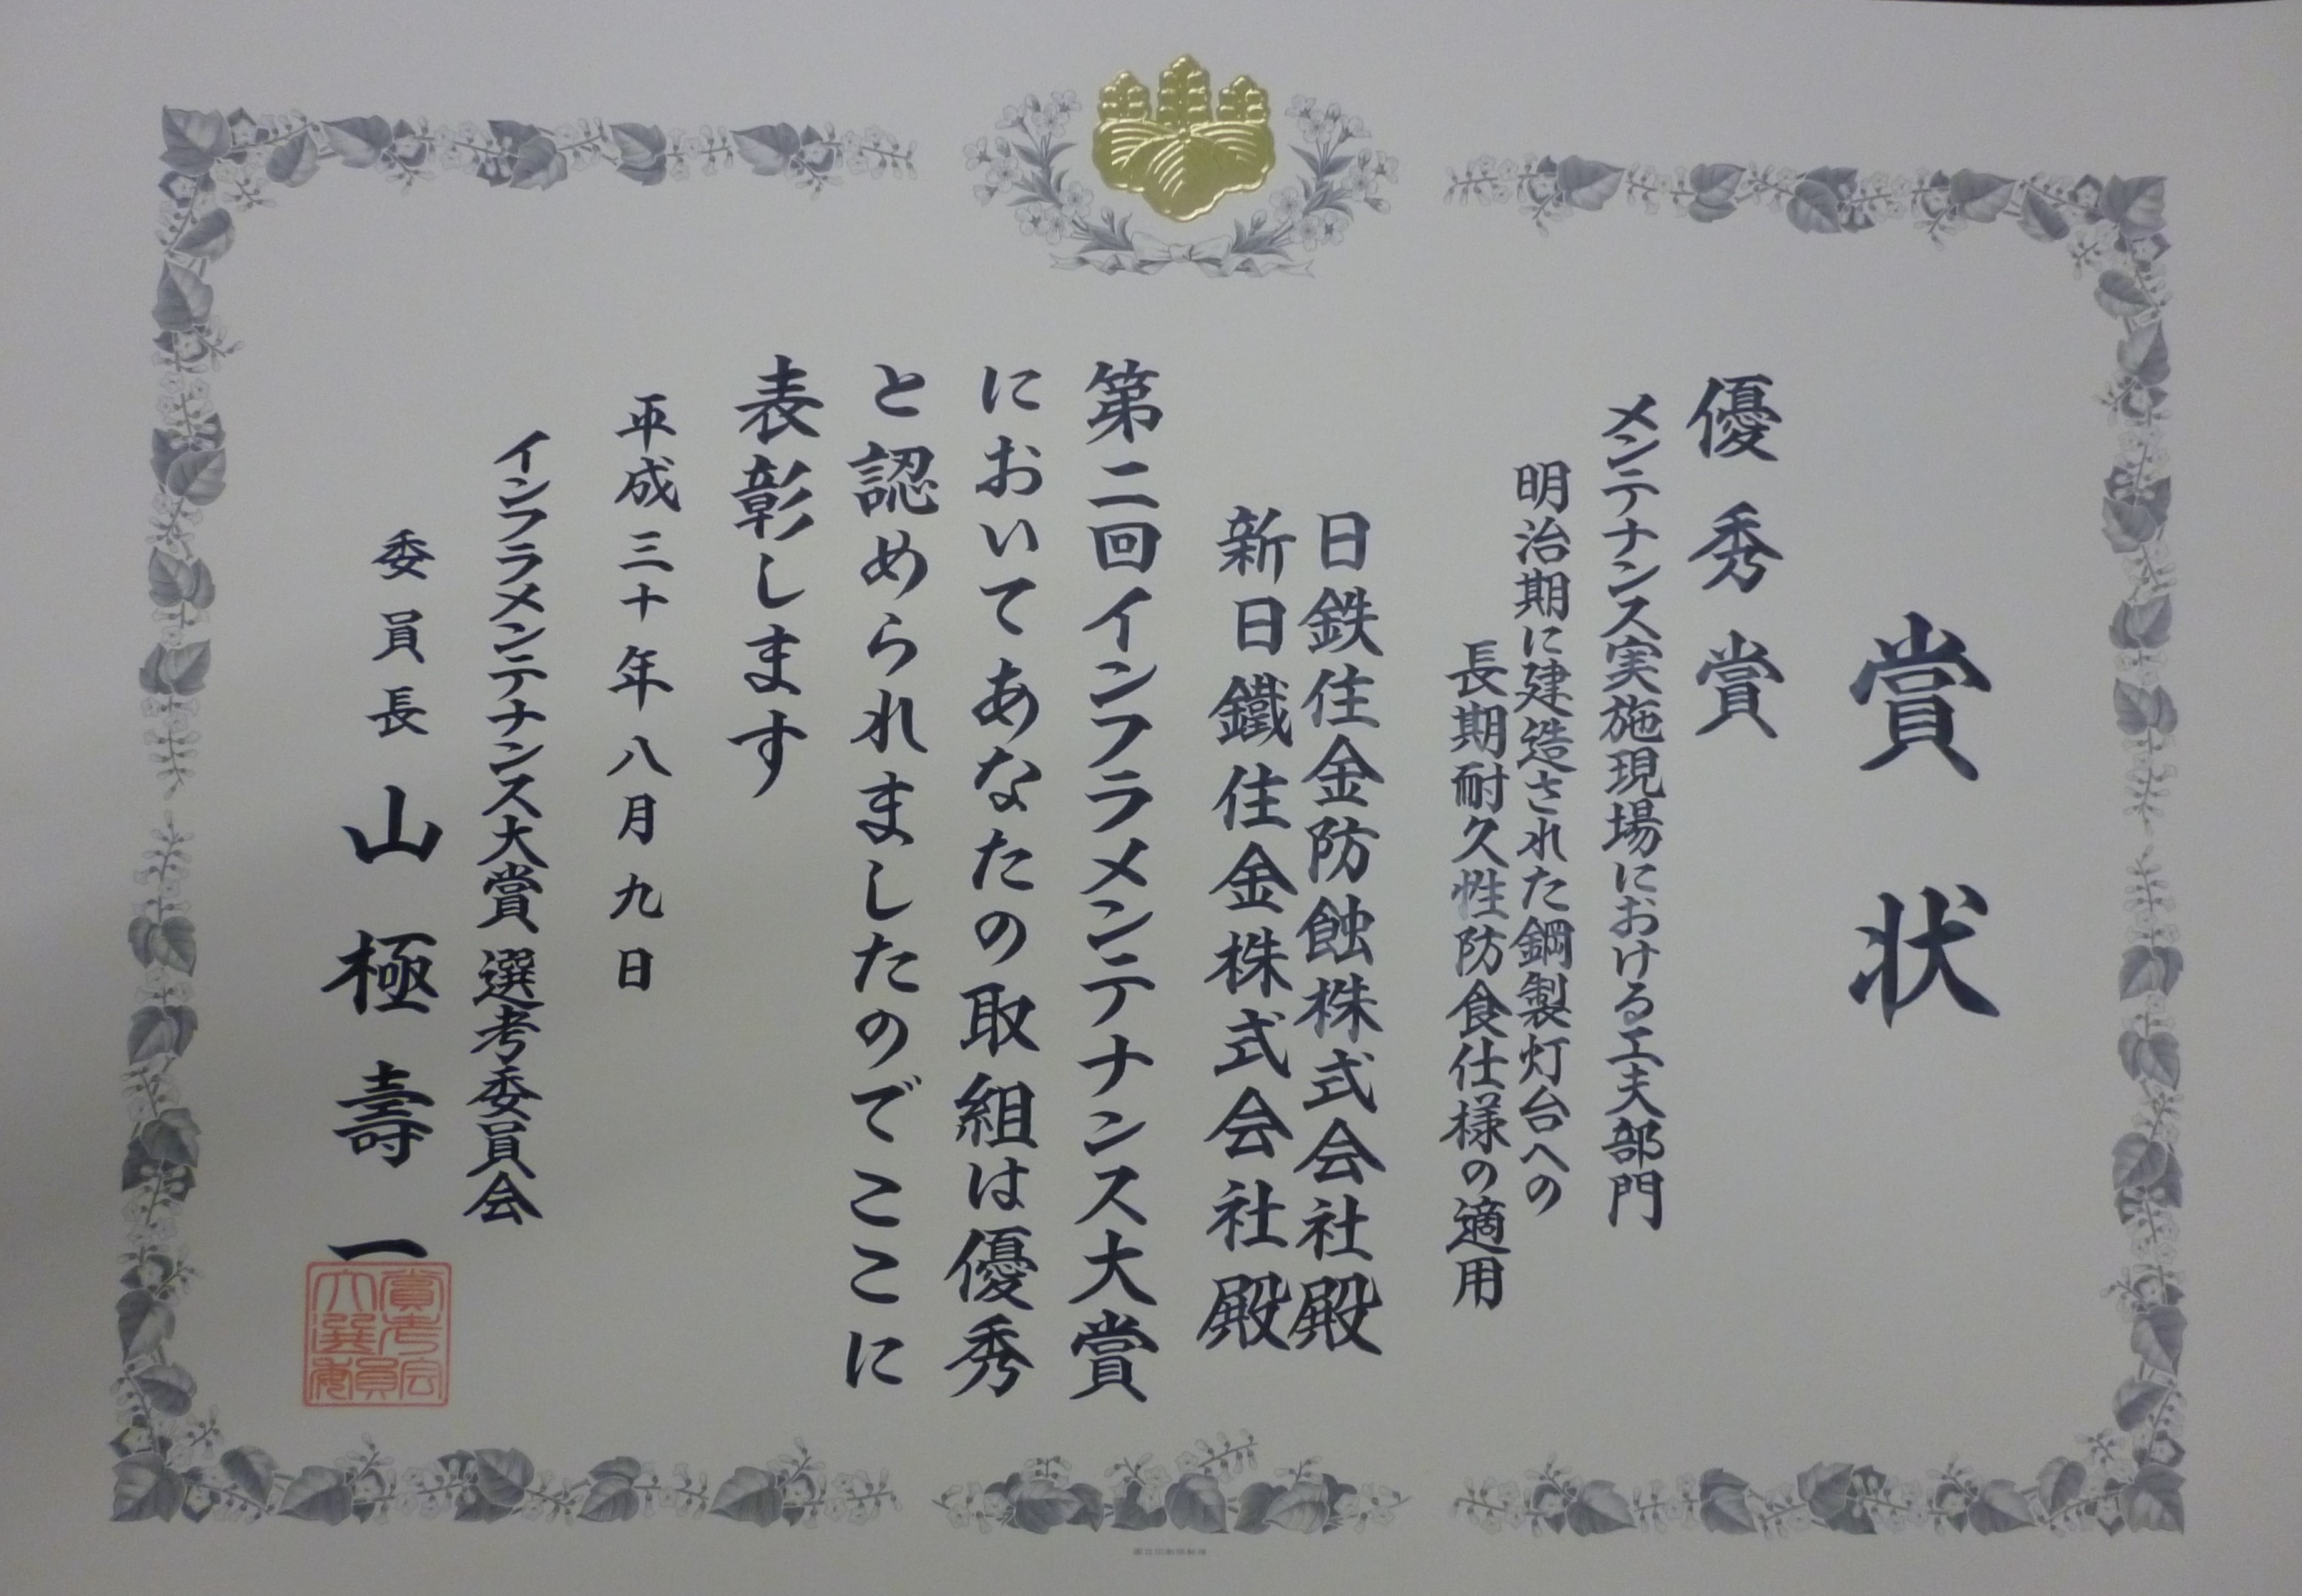 賞状
優秀賞
メンテナンス実施現場における工夫部門
明治期に建造された鋼製灯台への
長期耐久性防食仕様の適用
日鉄住金防蝕株式会社殿
新日鐵住金株式会社殿
第二回インフラメンテナンス大賞
においてあなたの取組は優秀
と認められましたのでここに
表彰します
平成三十年八月九日
インフラメンテナンス大賞 選考委員会
委員長 山極壽一
大賞
選考
委員会